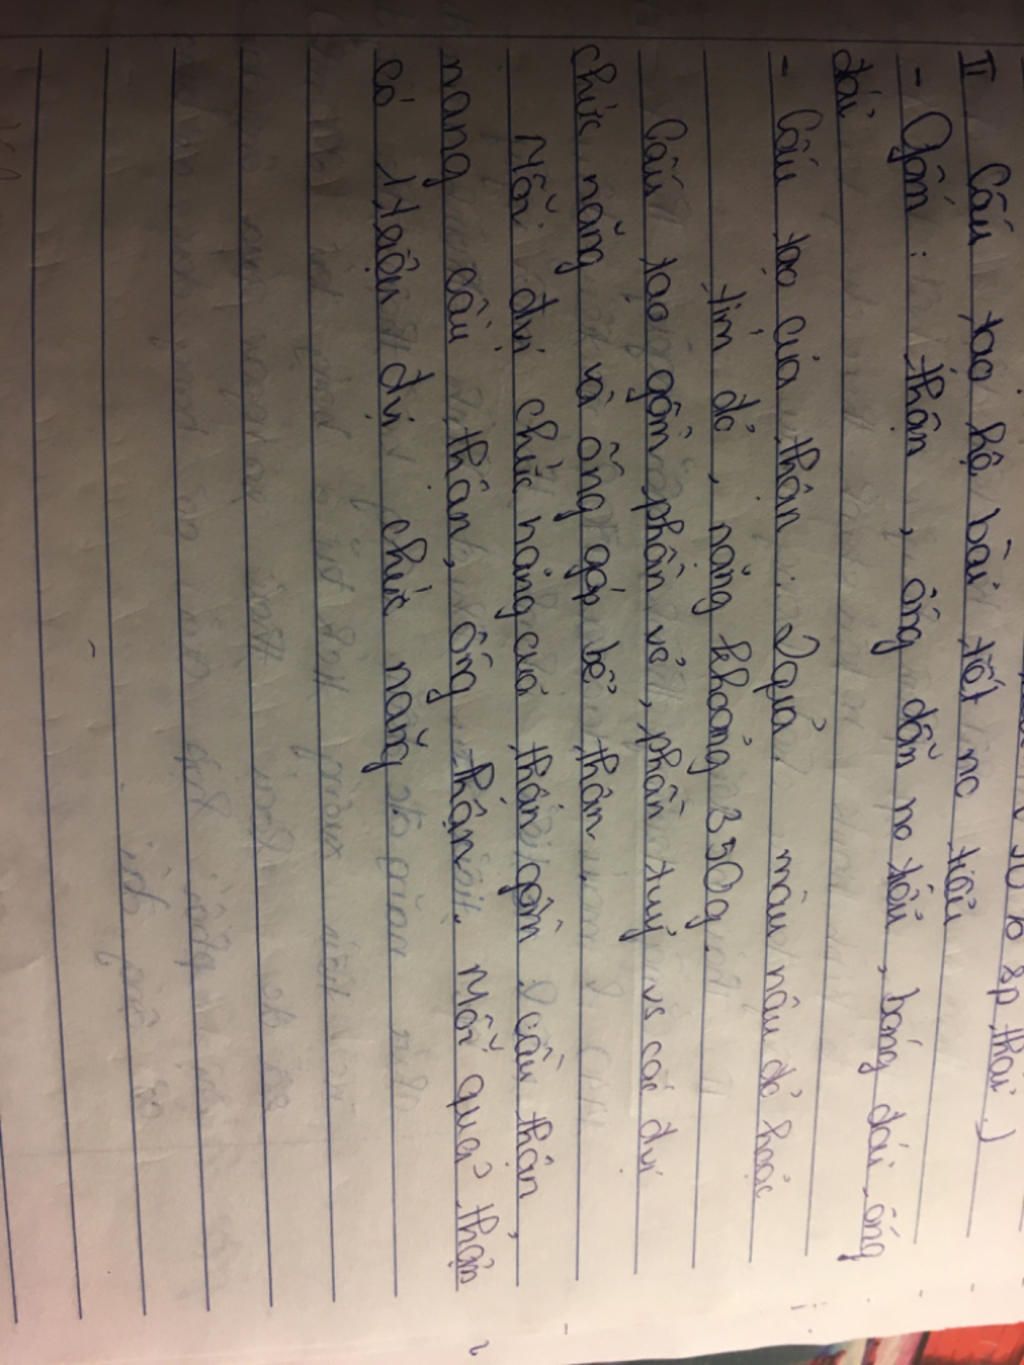 sp thải.)
II Cấu tạo hệ bài tiết nc tiểu
- Gồm: thận, ống dẫn nc tiểu, bóng đái, ống
đái
- Cấu tạo của thận: 2 quả màu nâu đỏ hoặc
tím đỏ, nặng khoảng 350g.
Cấu tạo gồm phần vỏ, phần tuỷ vs các đvị
chức năng và ống góp bể thận.
Mỗi đvị chức năng của thận gồm cầu thận,
nang cầu thận, ống thận. Mỗi quả thận
có 1 triệu đvị chức năng